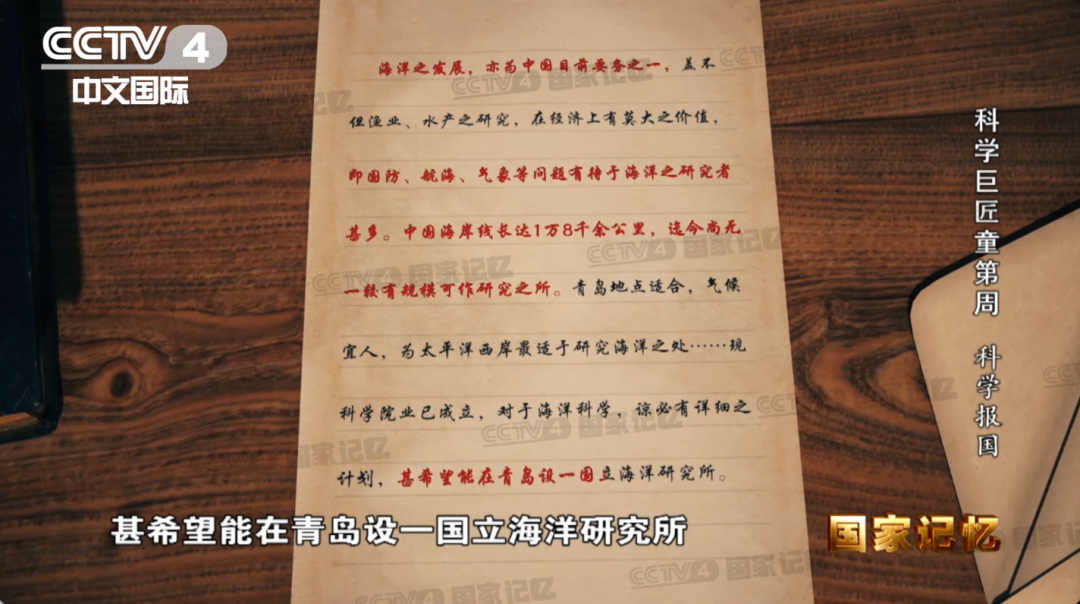 CCTV 4
中文国际
海洋之发展，亦为中国目前要务之一，盖不
但渔业、水产之研究，在经济上有莫大之价值，
即国防、航海、气象等问题有待于海洋之研究者
甚多。中国海岸线长达1万8千余公里，迄今尚无
一较有规模可作研究之所。青岛地点适合，气候
宜人，为太平洋西岸最适于研究海洋之处……现
科学院业已成立，对于海洋科学，谅必有详细之
计划，甚希望能在青岛设一国立海洋研究所。
科学巨匠童第周 科学报国
甚希望能在青岛设一国立海洋研究所
国家记忆
CCTV4 国家记忆
CCTV4 国家记忆
CCTV4 国家记忆
CCTV4 国家记忆
国家记忆
CCTV4 国家记忆
CCTV4 国家记忆